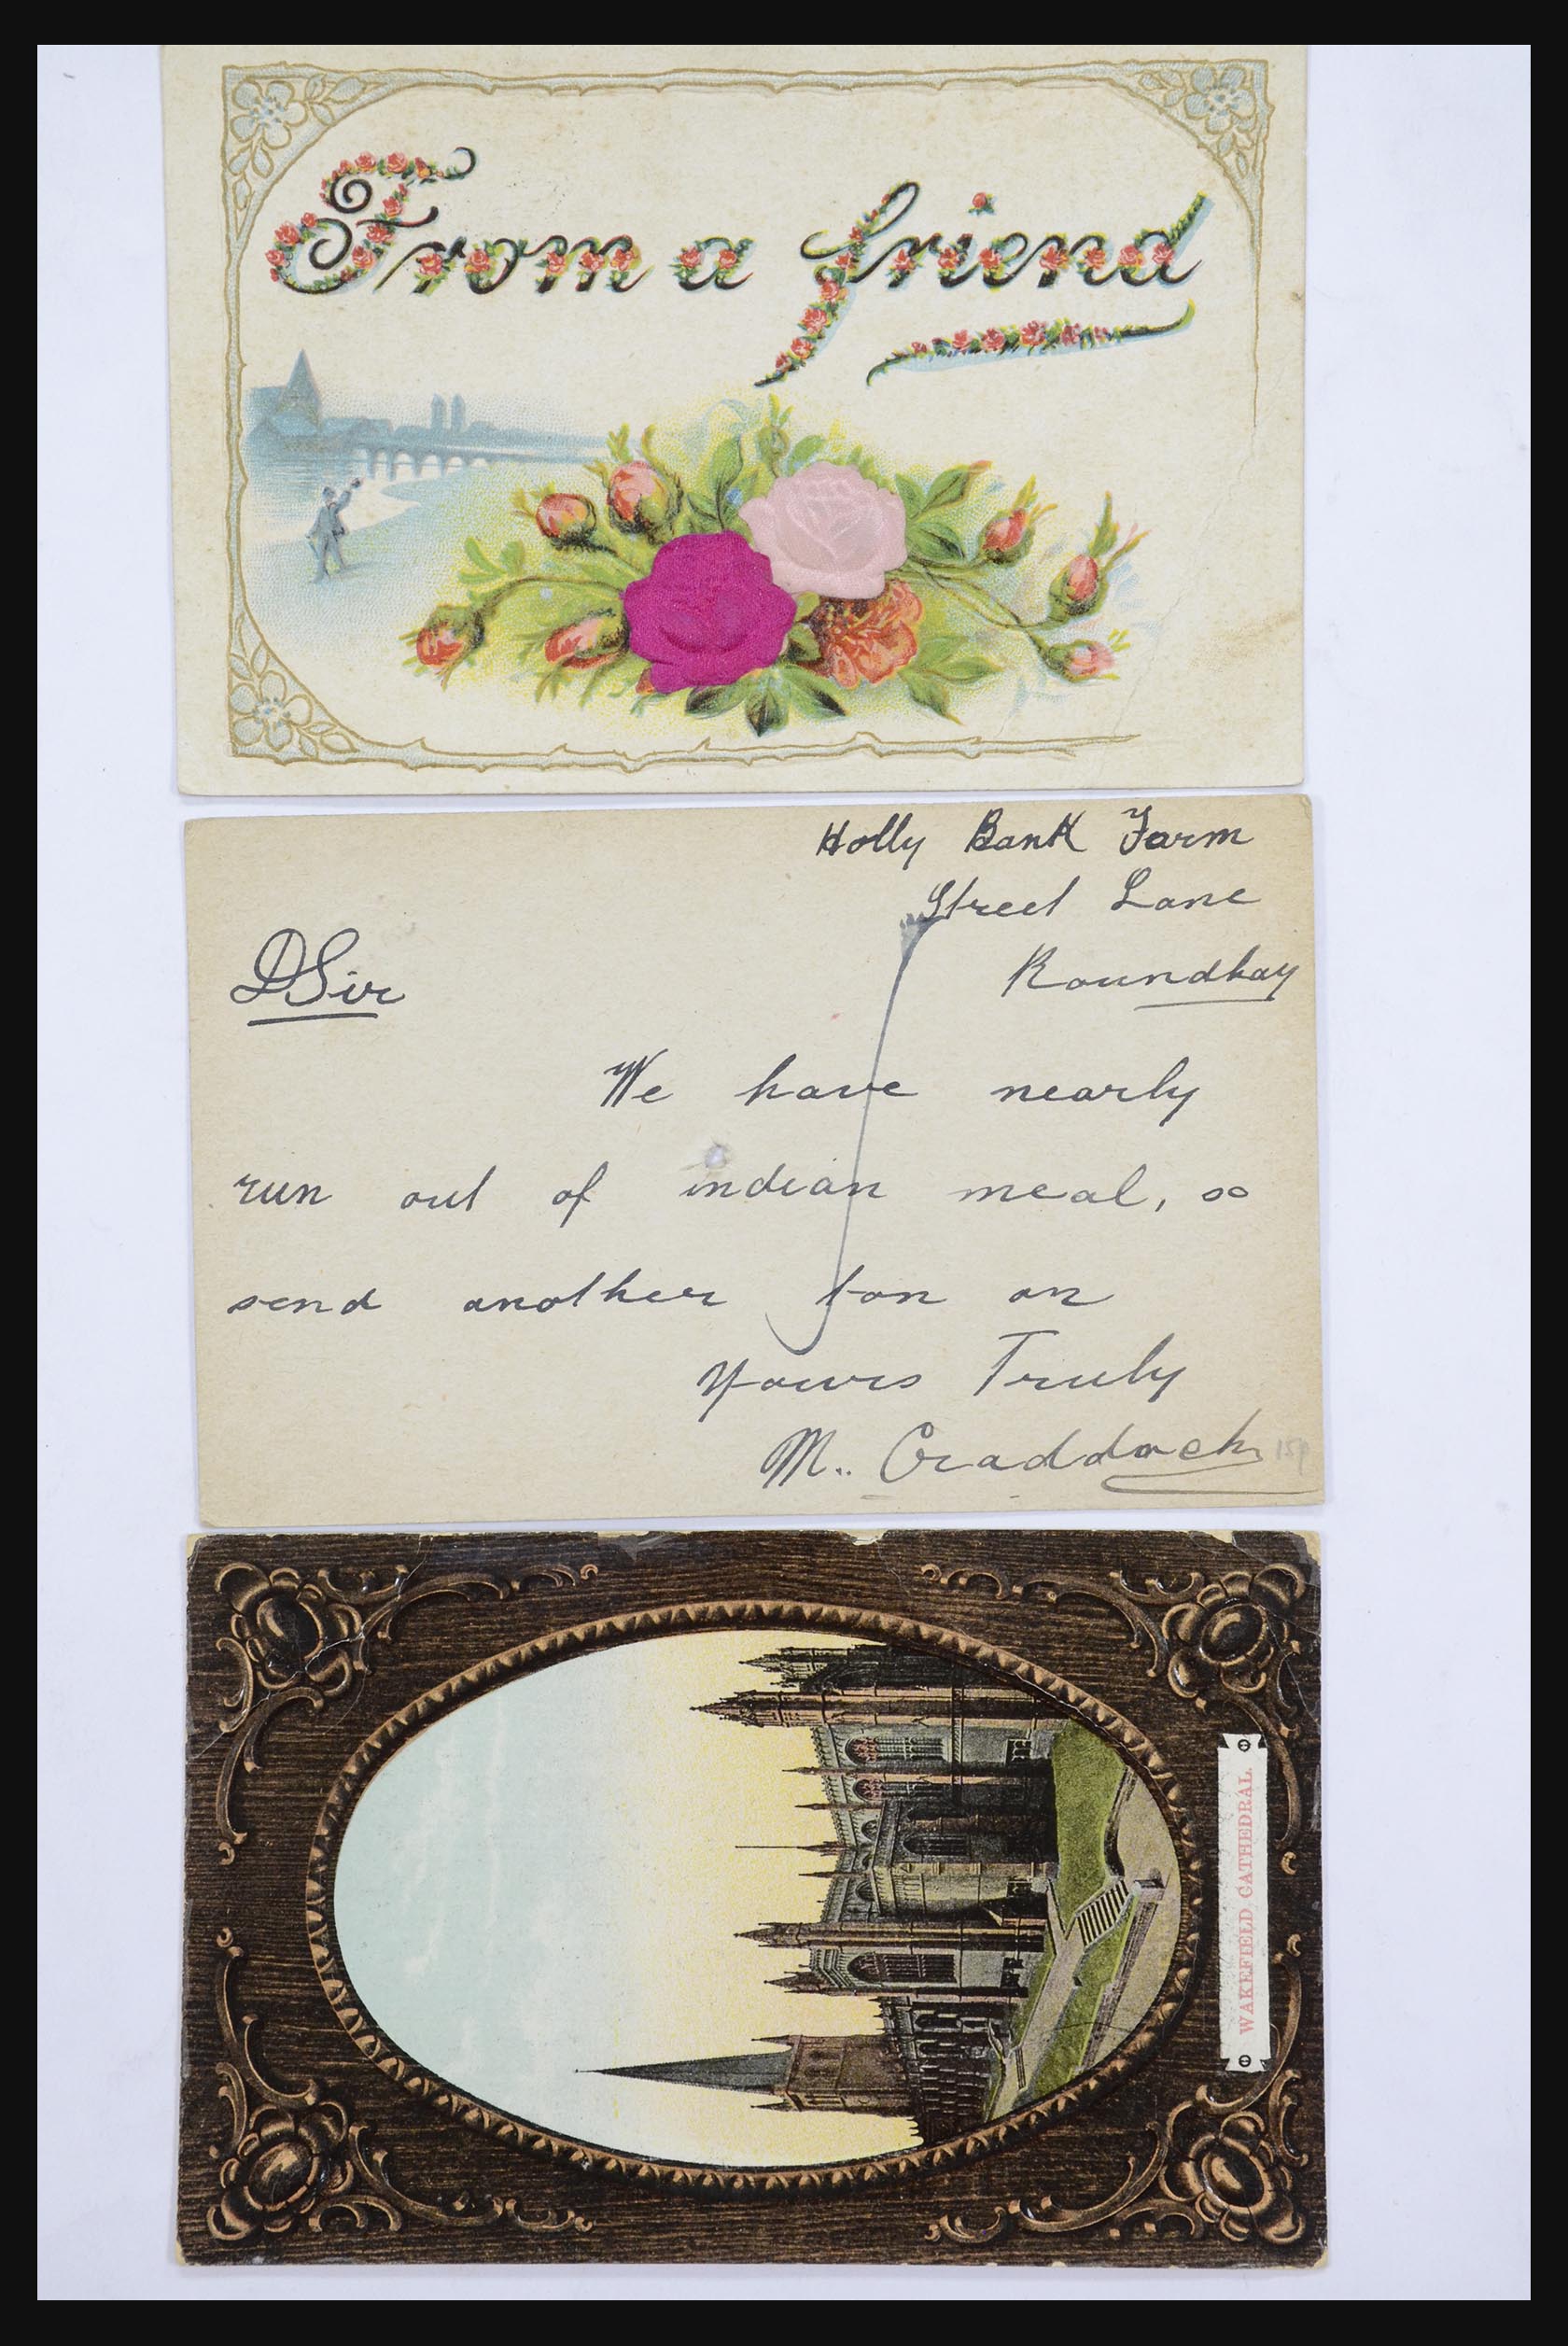 From a friend
Holly Bank Farm
Street Lane
Roundhay
DSir
We have nearly
run out of indian meal, so
send another ton on
Yours Truly
M.. Craddock
15p
WAKEFIELD CATHEDRAL.